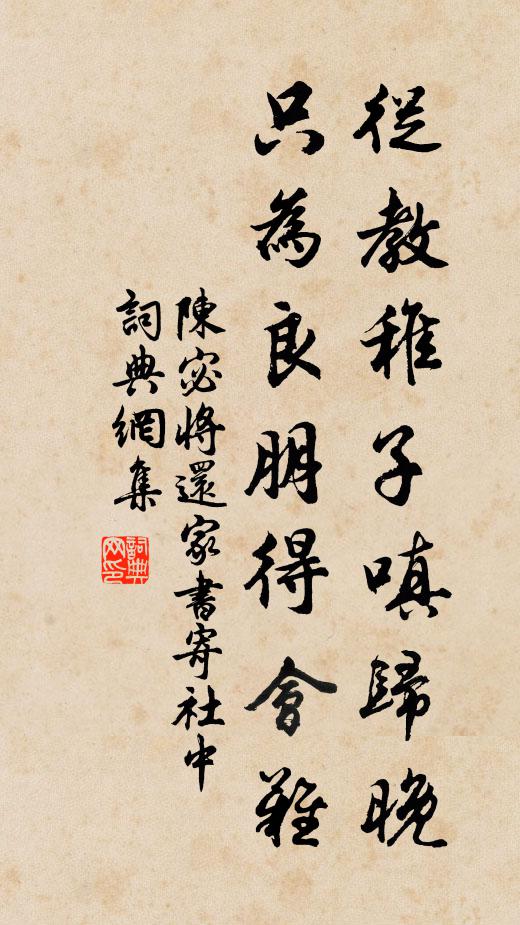 從教稚子嗔歸晚
只為良朋得會難
陳宓將還家書寄社中
詞典網集
詞典网印